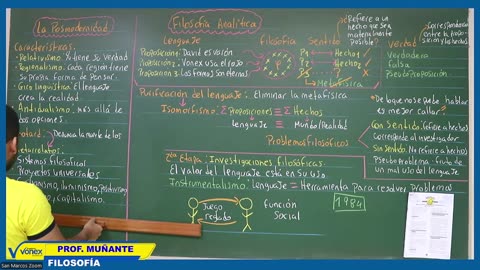 La Posmodernidad
Características:
Relativismo: x tiene su verdad
Regionalismo: Cada región tiene
su propia forma de pensar.
Giro lingüístico: El lenguaje
crea la realidad
Antidualismo: más allá de
dos opciones.
Declara la muerte de los
Sistemas filosóficos
Proyectos universales
capitalismo.
Filosofía Analítica
Lenguaje
Filosofía
Sentido
Proposición 1: David es varón
Proposición 2: Vonex usa el rojo
Proposición 3: Las formas son eternas
P1
P2
P3
Hecho 1
Hecho 2
Hecho 3
Metafísica
¿Refiere a
un hecho que sea
materialmente
posible?
Correspondencia
entre la propo-
sición y los hechos
Verdad
Verdadera
Falsa
Pseudoproposición
Purificación del lenguaje: Eliminar la metafísica
Isomorfismo: Σ Proposiciones ≡ Σ Hechos
Lenguaje ≡ Mundo/Realidad
"De lo que no se puede hablar
es mejor callar"
Problemas filosóficos
Con Sentido: (refiere a hechos)
Corresponde al investigador
Sin Sentido: (No refiere a hechos)
Pseudo problema: fruto de
un mal uso del lenguaje
2da Etapa: Investigaciones filosóficas:
El valor del lenguaje está en su uso.
Instrumentalismo: Lenguaje = Herramienta para resolver problemas
Juego
reglado
función
Social
1984
Vonex
PROF. MUÑANTE
FILOSOFÍA
San Marcos Zoom